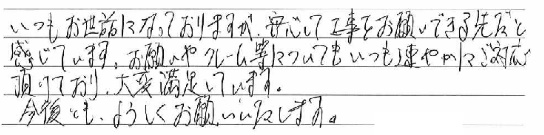 いつもお世話になっておりますが、安心して工事をお願いできる先だと
感じています。お願いやクレーム等についてもいつも速やかにご対応
頂けており、大変満足しています。
今後とも、よろしくお願いいたします。